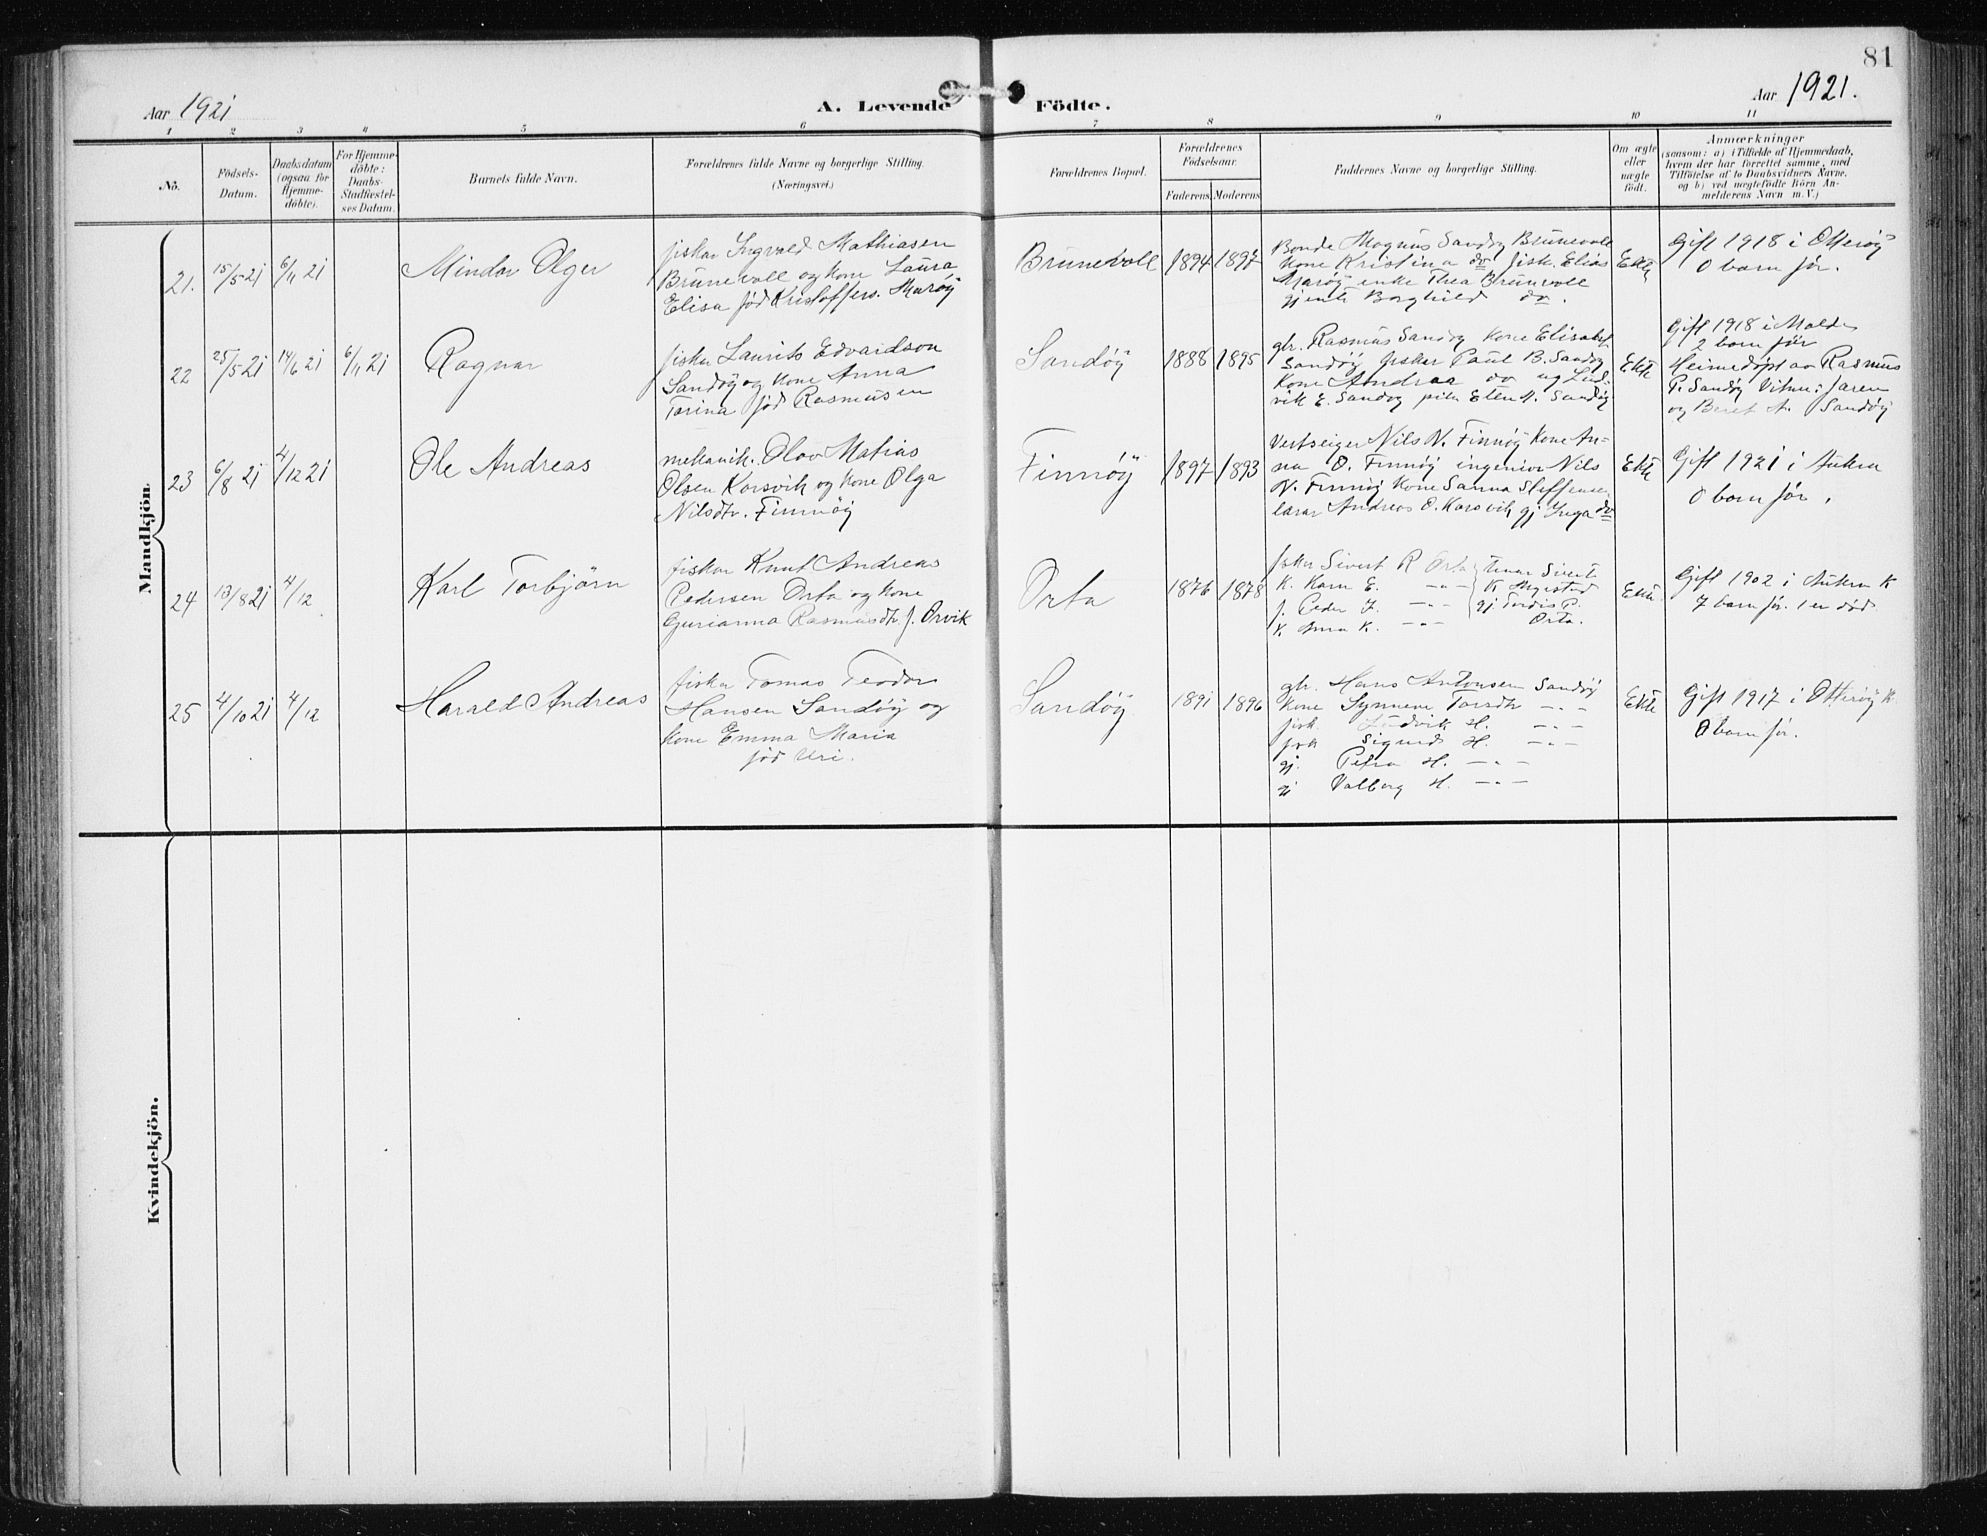 81
Aar 1921
A. Levende Födte.
Aar 1921.
1 2 3 4 5 6 7 8 9 10 11
No.
Födsels-
Datum.
Daabsdatum
(ogsaa for
Hjemme-
döbte).
For Hjemme-
döbte:
Daabs-
Stadfæstel-
ses Datum.
Barnets fulde Navn.
Forældrenes fulde Navne og borgerlige Stilling
(Næringsvei.)
Forældrenes Bopæl.
Forældrenes
Födselsaar.
Faderens. Moderens.
Faddernes Navne og borgerlige Stilling.
Om ægte
eller
uægte
födt.
Anmærkninger
(saasom: a) i Tilfælde af Hjemmedaab,
hvem der har forrettet samme, med
Tilföielse af to Daabsvidners Navne,
og b) ved uægtefödte Börn An-
melderens Navn m. V.)
Mandkjön.
21. 15/5 21 6/11 21
Mindor Olger
fisker Ingvald Mathiasen
Brunevoll og kone Laura
Elisa fød Kristoffers. Marøy
Brunevoll 1894 1897
Bonde Magnus Sandøy Brunevoll
kone Kristina do fisk. Elias
Marøy enke Thea Brunevoll
gjente Borghild do.
Ekte
Gift 1918 i Otterøy
0 barn før.
22 25/5 21 14/6 21 6/11 21
Ragnar
fisker Laurits Edvardson
Sandøy og kone Anna
Torina fød Rasmusen
Sandøy 1888 1895
gbr. Rasmus Sandøy kone Elisabet
Sandøy fisker Paul B. Sandøy
kone Andrea do og Lud-
vik E. Sandøy pike Elen M. Sandøy
Ekte
Gift 1918 i Molde
2 barn før
Heimedøpt av Rasmus
P. Sandøy Vitne: faren
og Beret A. Sandøy
23 6/8 21 4/12 21
Ole Andreas
mekanik. Olav Matias
Olsen Korsvik og kone Olga
Nilsdtr. Finnøy
Finnøy 1897 1893
Verftseiger Nils N. Finnøy kone An-
na O. Finnøy ingeniør Nils
N. Finnøy kone Sanna Steffense
lærar Andreas O. Korsvik gj Inga do
Ekte
Gift 1921 i Aukra
0 barn før.
24 13/8 21 4/12
Karl Torbjørn
fisker Knut Andreas
Pedersen Orta og kone
Gurianna Rasmusdtr. f. Orvik
Orta 1876 1878
fisker Sivert R Orta
K. Karn E. — " —
f. Peder K. — " —
K. Anna K. — " —
gj Tordis P.
Orta.
Ekte
Gift 1902 i Aukra K
7 barn før. 1 er død
25 4/10 21 4/12
Harald Andreas
fisker Tomas Teodor
Hansen Sandøy og
kone Emma Maria
fød Uri.
Sandøy 1891 1896
gbr. Hans Antonsen Sandøy
kone Synneve Torsdtr — " —
fisk. Ludvik H. — " —
fisk Sigurd H. — " —
gj. Petra H. — " —
gj Valborg H. — " —
Ekte
Gift 1917 i Otterøy K
0 barn før.
Kvindekjön.